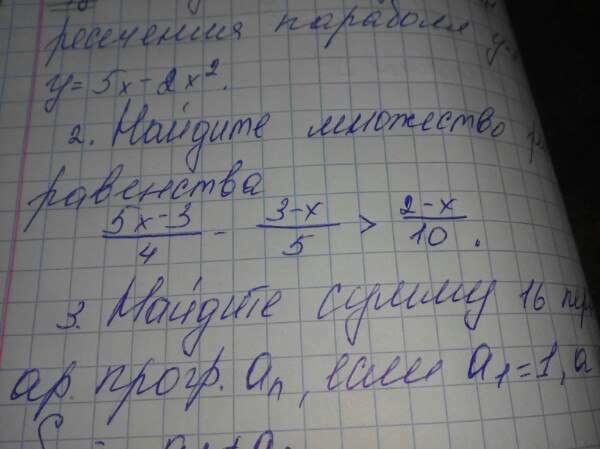 ресечения параболы y=
y = 5x - 2x².
2. Найдите множество
равенства
(5x-3)/4 - (3-x)/5 > (2-x)/10.
3. Найдите сумму 16
ар. прогр. aₙ, если a₁=1, a